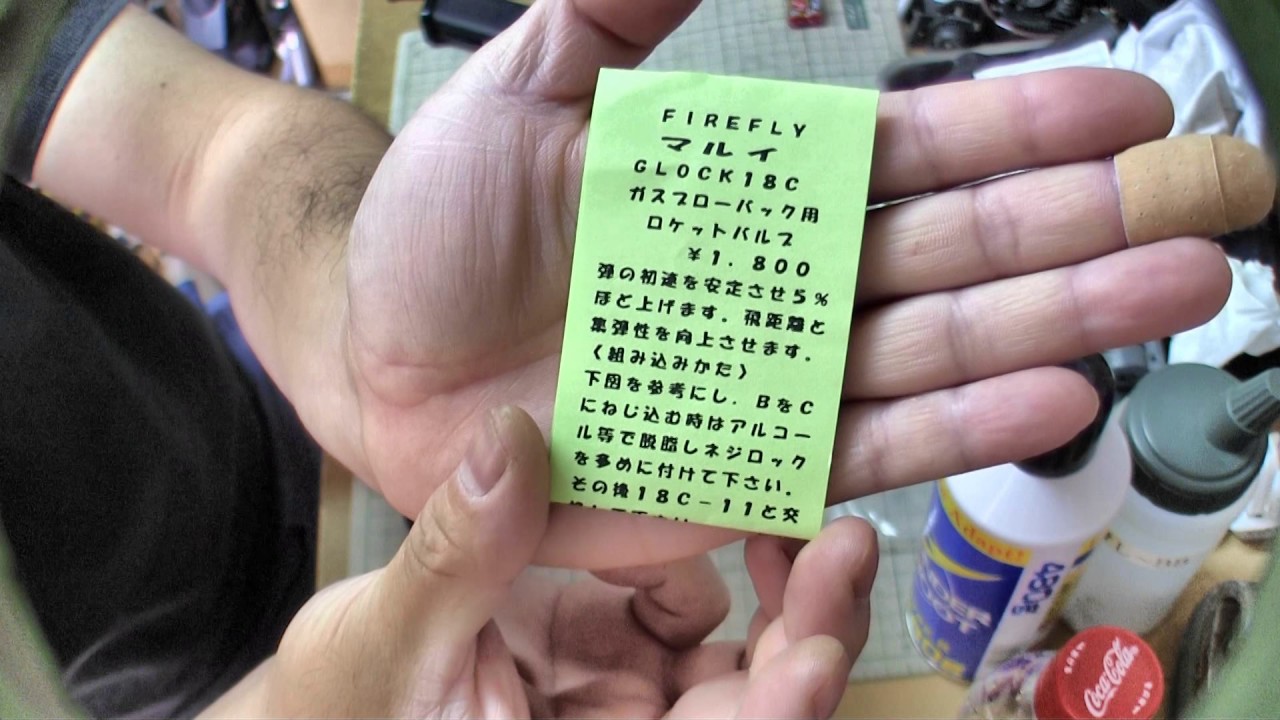 FIREFLY
マルイ
GLOCK18C
ガスブローバック用
ロケットバルブ
¥1.800
弾の初速を安定させ5%
ほど上げます。飛距離と
集弾性を向上させます。
〈組み込みかた〉
下図を参考にし.BをC
にねじ込む時はアルコー
ル等で脱脂しネジロック
を多めに付けて下さい。
その後18C-11と交
Coca-Cola